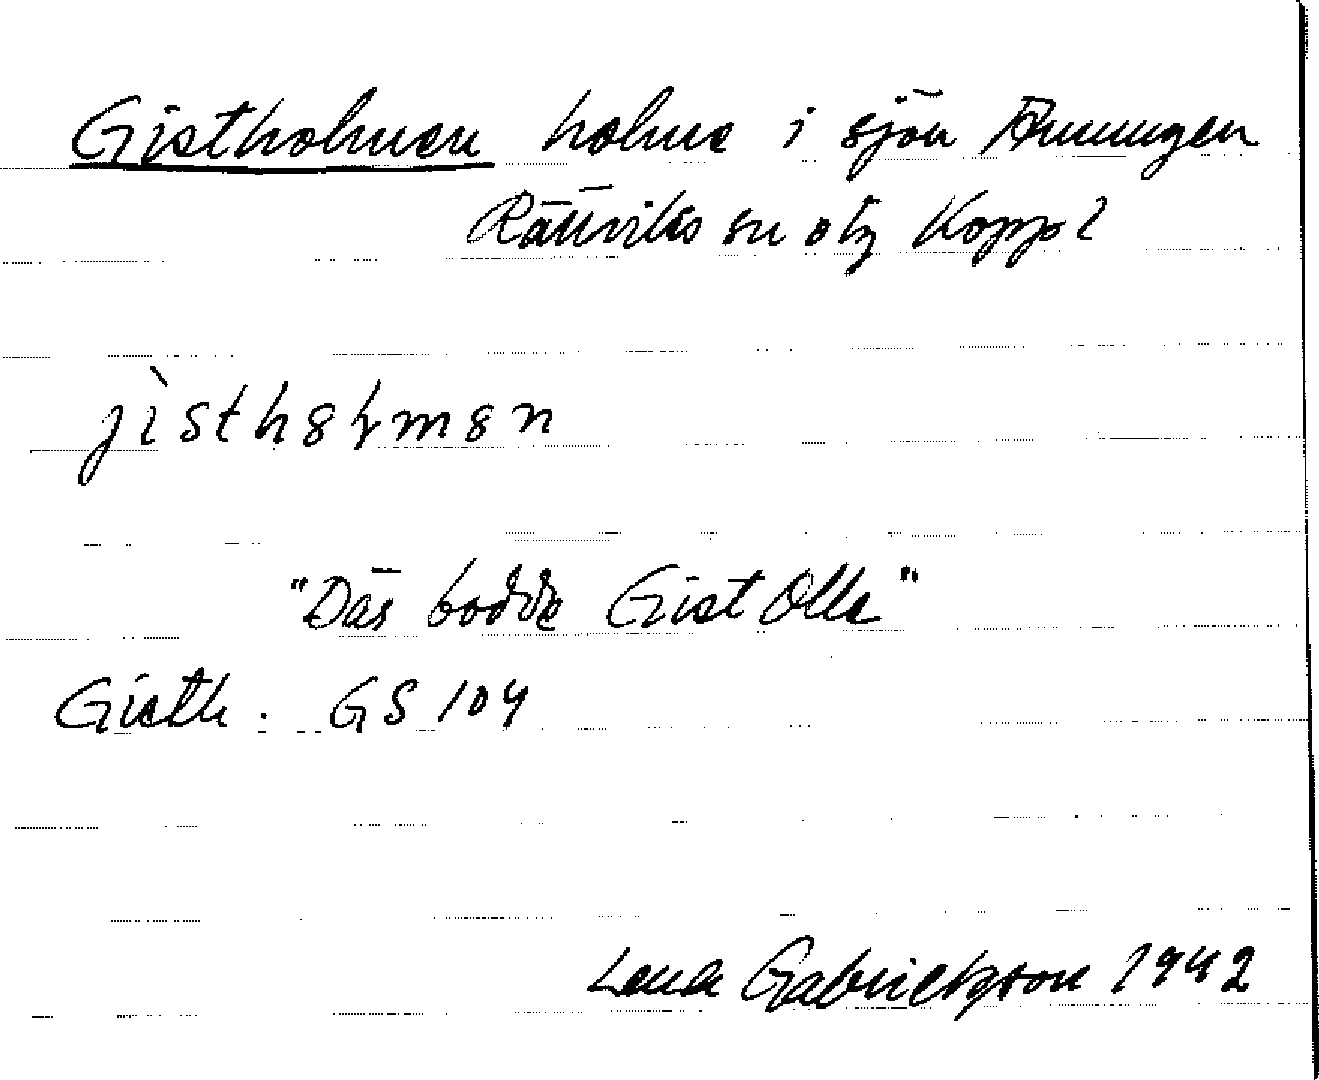 Gistholmen holme i sjön Amungen
Rättviks sn o tg Koppl
jìsthȣɫmȣn
"Där bodde Gist Olle"
Gisth. GS 104
Lena Gabrielsson 1942